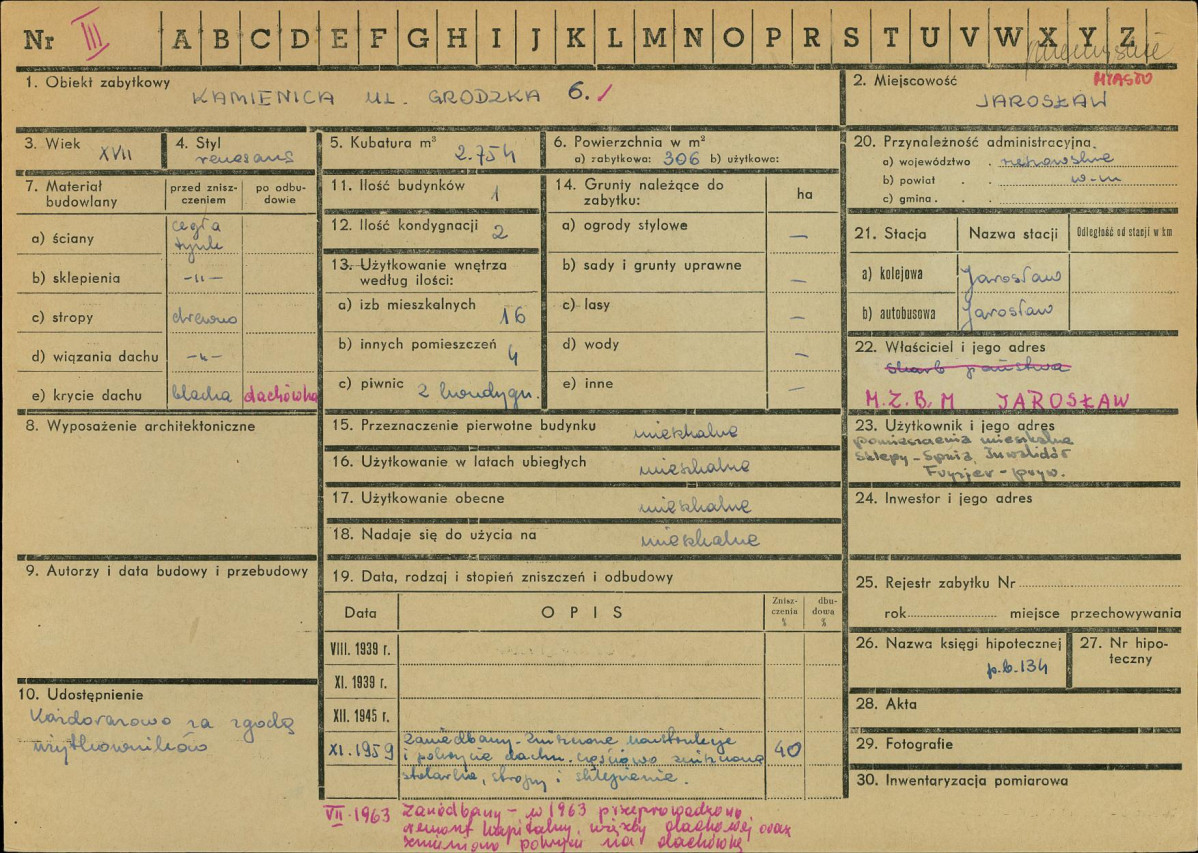 Nr III A B C D E F G H I J K L M N O P R S T U V W X Y Z
przemyskie
1. Obiekt zabytkowy KAMIENICA UL. GRODZKA 6.
2. Miejscowość MIASTO
JAROSŁAW
3. Wiek XVII
4. Styl renesans
5. Kubatura m³ 2.754
6. Powierzchnia w m²
a) zabytkowa: 306 b) użytkowe:
7. Materiał budowlany
przed zniszczeniem
po odbudowie
a) ściany cegła tynk
b) sklepienia -„-
c) stropy drewno
d) wiązania dachu -„-
e) krycie dachu blacha dachówka
8. Wyposażenie architektoniczne
9. Autorzy i data budowy i przebudowy
10. Udostępnienie
Każdorazowo za zgodą
użytkowników
11. Ilość budynków 1
12. Ilość kondygnacji 2
13. Użytkowanie wnętrza
według ilości:
a) izb mieszkalnych 16
b) innych pomieszczeń 4
c) piwnic 2 kondygn.
14. Grunty należące do
zabytku:
ha
a) ogrody stylowe —
b) sady i grunty uprawne —
c) lasy —
d) wody —
e) inne —
15. Przeznaczenie pierwotne budynku mieszkalne
16. Użytkowanie w latach ubiegłych mieszkalne
17. Użytkowanie obecne mieszkalne
18. Nadaje się do użycia na mieszkalne
19. Data, rodzaj i stopień zniszczeń i odbudowy
Data OPIS Zniszczenia % dbudowa %
VIII. 1939 r.
XI. 1939 r.
XII. 1945 r.
XI. 1959 zaniedbany - zniszczone konstrukcje 40
i pokrycie dachu. częściowo zniszczona
stolarka, stropy i sklepienie.
VII. 1963 Zaniedbany - w 1963 przeprowadzono
remont kapitalny, więźby dachowej oraz
zmieniono pokrycie na dachówkę
20. Przynależność administracyjna.
a) województwo . rzeszowskie
b) powiat . . w-m
c) gmina . .
21. Stacja Nazwa stacji Odległość od stacji w km
a) kolejowa Jarosław
b) autobusowa Jarosław
22. Właściciel i jego adres
skarb państwa
M.Z.B.M JAROSŁAW
23. Użytkownik i jego adres
pomieszczenia mieszkalne
Sklepy - Spnia, Inwalidów
Fryzjer - pryw.
24. Inwestor i jego adres
25. Rejestr zabytku Nr
rok miejsce przechowywania
26. Nazwa księgi hipotecznej
p.b.134
27. Nr hipoteczny
28. Akta
29. Fotografie
30. Inwentaryzacja pomiarowa